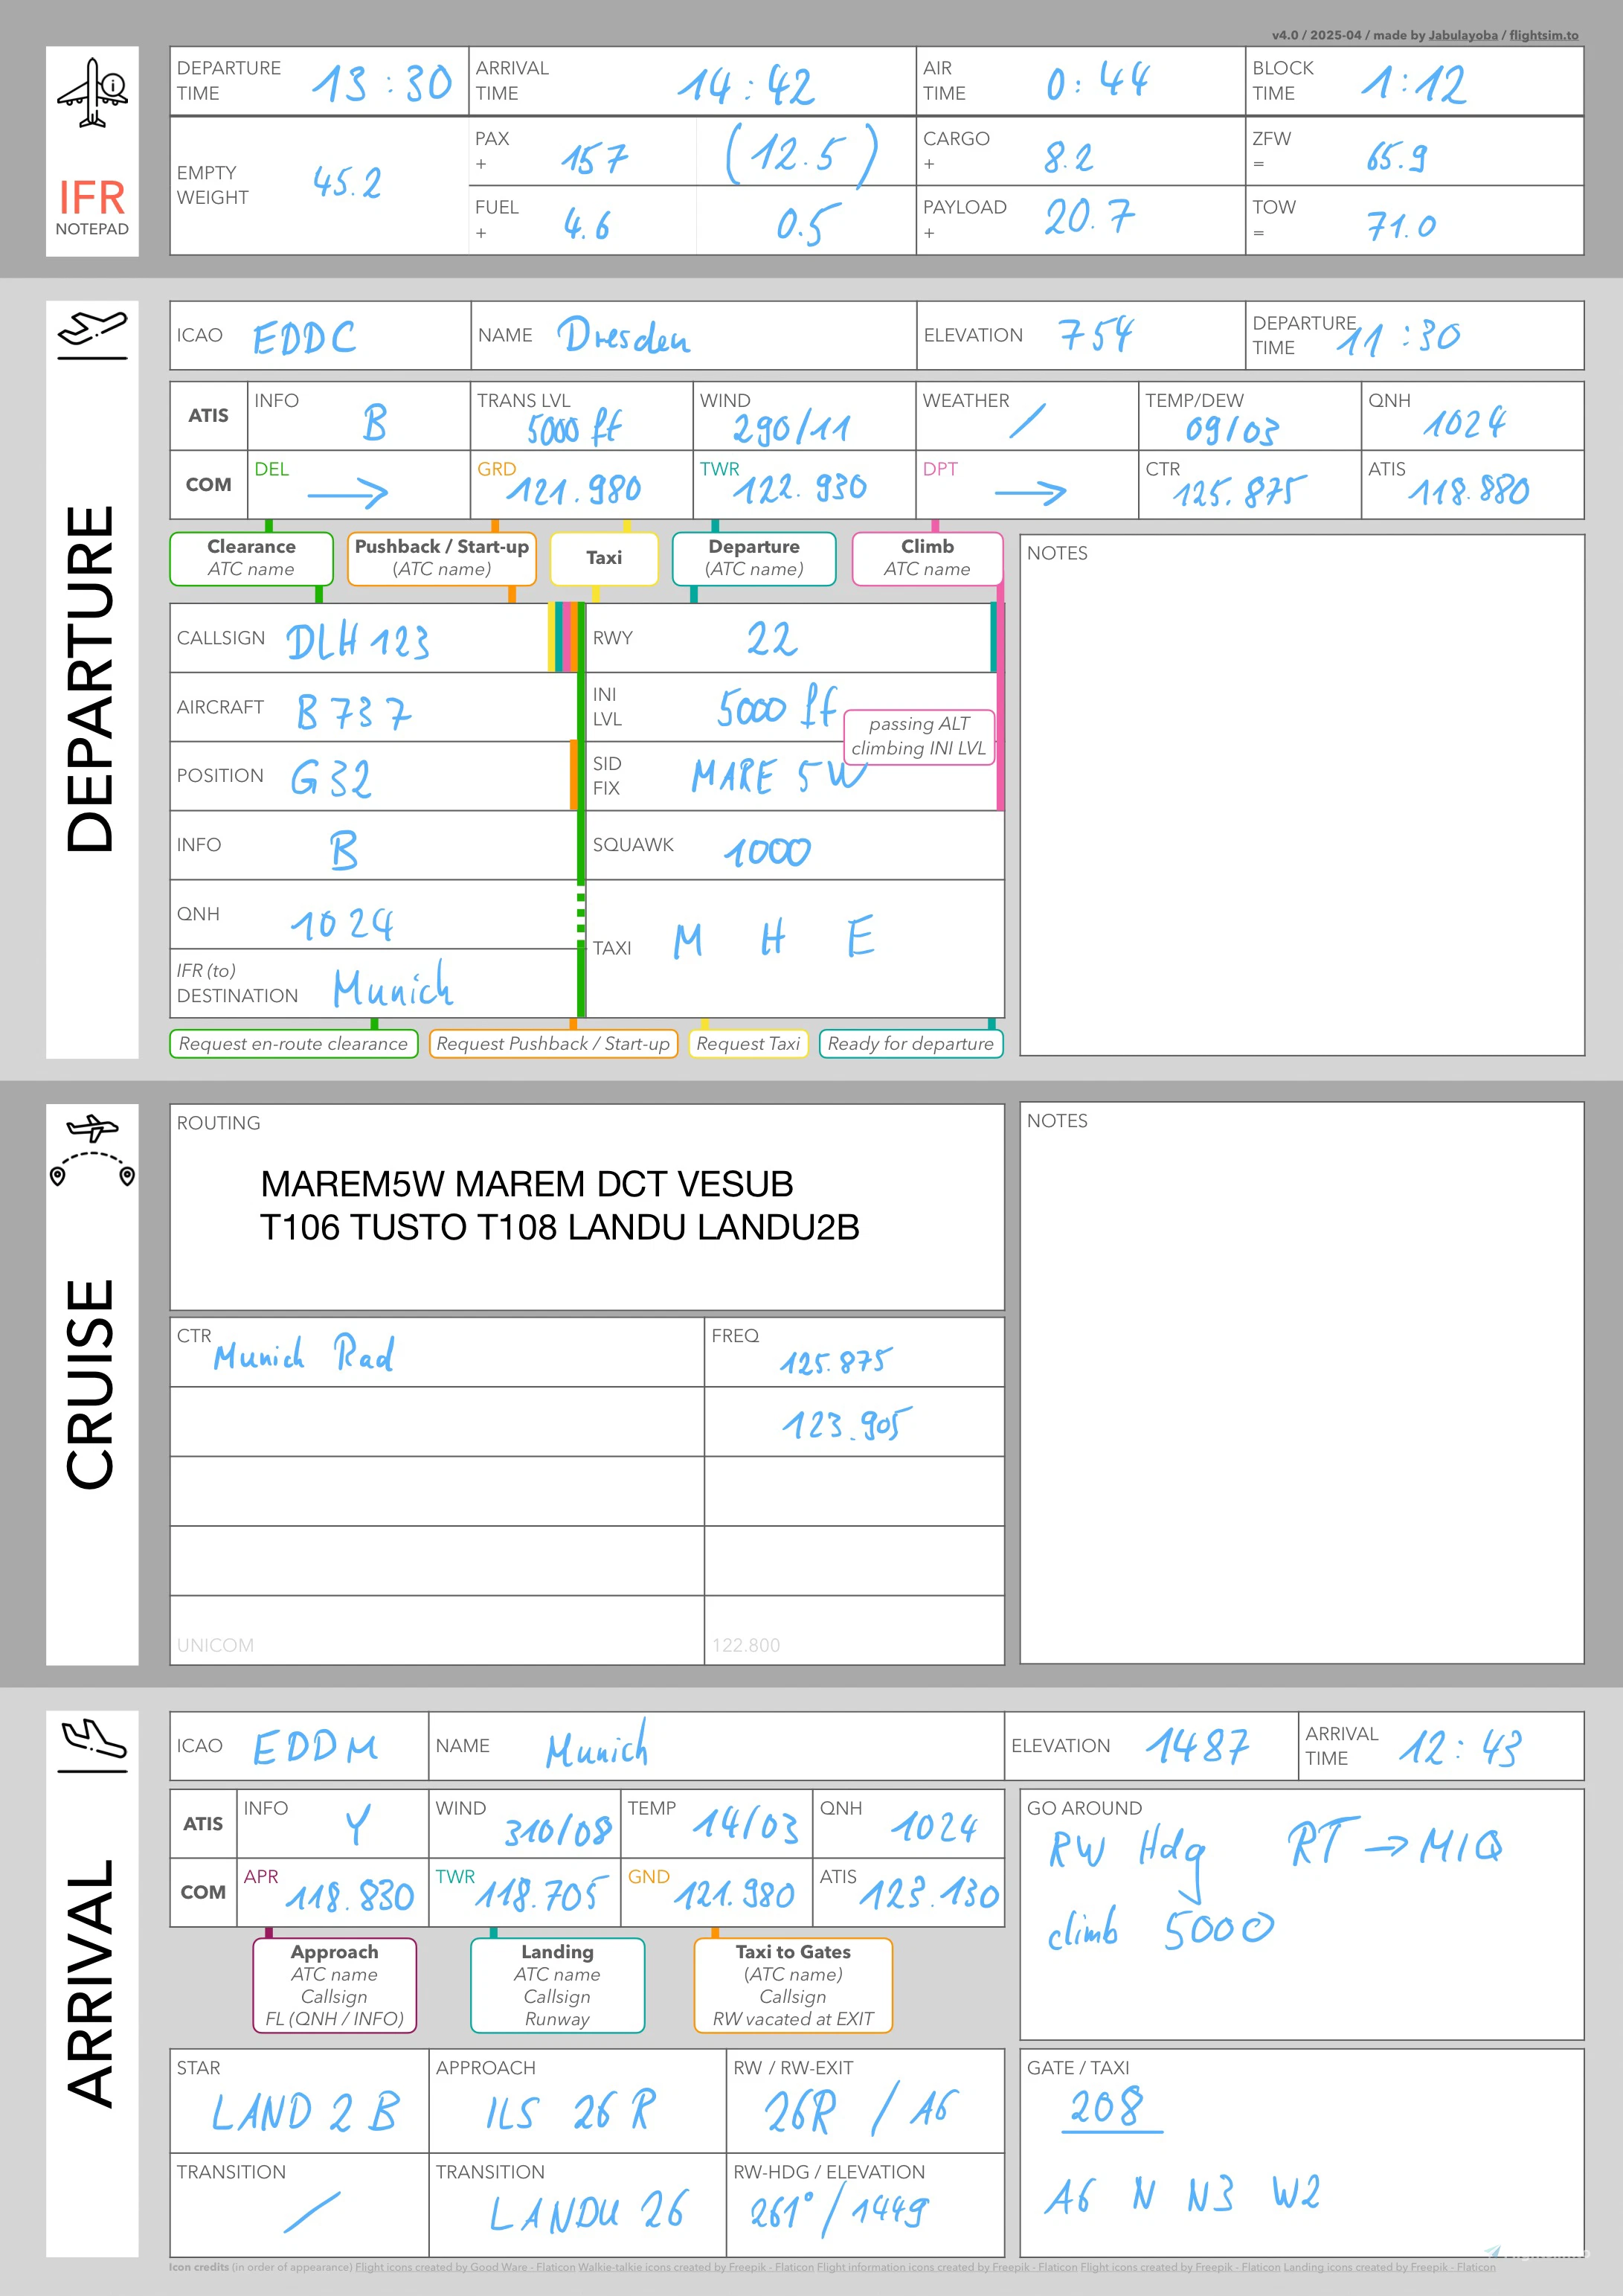 v4.0 / 2025-04 / made by Jabulayoba / flightsim.to
IFR
NOTEPAD
DEPARTURE TIME 13:30
ARRIVAL TIME 14:42
AIR TIME 0:44
BLOCK TIME 1:12
EMPTY WEIGHT 45.2
PAX + 157 (12.5)
CARGO + 8.2
ZFW = 65.9
FUEL + 4.6 0.5
PAYLOAD + 20.7
TOW = 71.0
DEPARTURE
ICAO EDDC
NAME Dresden
ELEVATION 754
DEPARTURE TIME 11:30
ATIS
INFO B
TRANS LVL 5000 ft
WIND 290/11
WEATHER /
TEMP/DEW 09/03
QNH 1024
COM
DEL →
GRD 121.980
TWR 122.930
DPT →
CTR 125.875
ATIS 118.880
Clearance
ATC name
Pushback / Start-up
(ATC name)
Taxi
Departure
(ATC name)
Climb
ATC name
NOTES
CALLSIGN DLH 123
RWY 22
AIRCRAFT B737
INI LVL 5000 ft
passing ALT
climbing INI LVL
POSITION G32
SID FIX MARE 5W
INFO B
SQUAWK 1000
QNH 1024
TAXI M H E
IFR (to)
DESTINATION Munich
Request en-route clearance
Request Pushback / Start-up
Request Taxi
Ready for departure
CRUISE
ROUTING
MAREM5W MAREM DCT VESUB
T106 TUSTO T108 LANDU LANDU2B
NOTES
CTR Munich Rad
FREQ 125.875
123.905
UNICOM 122.800
ARRIVAL
ICAO EDDM
NAME Munich
ELEVATION 1487
ARRIVAL TIME 12:43
ATIS
INFO Y
WIND 310/08
TEMP 14/03
QNH 1024
COM
APR 118.830
TWR 118.705
GND 121.980
ATIS 123.130
GO AROUND
RW Hdg RT → MIQ
climb 5000
Approach
ATC name
Callsign
FL (QNH / INFO)
Landing
ATC name
Callsign
Runway
Taxi to Gates
(ATC name)
Callsign
RW vacated at EXIT
STAR LAND 2 B
APPROACH ILS 26 R
RW / RW-EXIT 26R / A6
GATE / TAXI
208
A6 N N3 W2
TRANSITION /
TRANSITION LANDU 26
RW-HDG / ELEVATION 261° / 1449
Icon credits (in order of appearance) Flight icons created by Good Ware - Flaticon Walkie-talkie icons created by Freepik - Flaticon Flight information icons created by Freepik - Flaticon Flight icons created by Freepik - Flaticon Landing icons created by Freepik - Flaticon